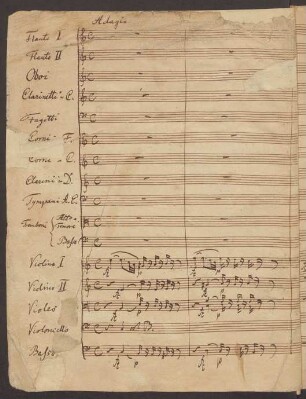 Adagio
Flauto I
Flauto II
Oboi
Clarinetti in C.
Fagotti
Corni - F.
Corni - C.
Clarini in D.
Tympani A. E.
Tromboni Alto
Tenore
Basso
Violino I
Violino II
Violes
Violoncello
Basso